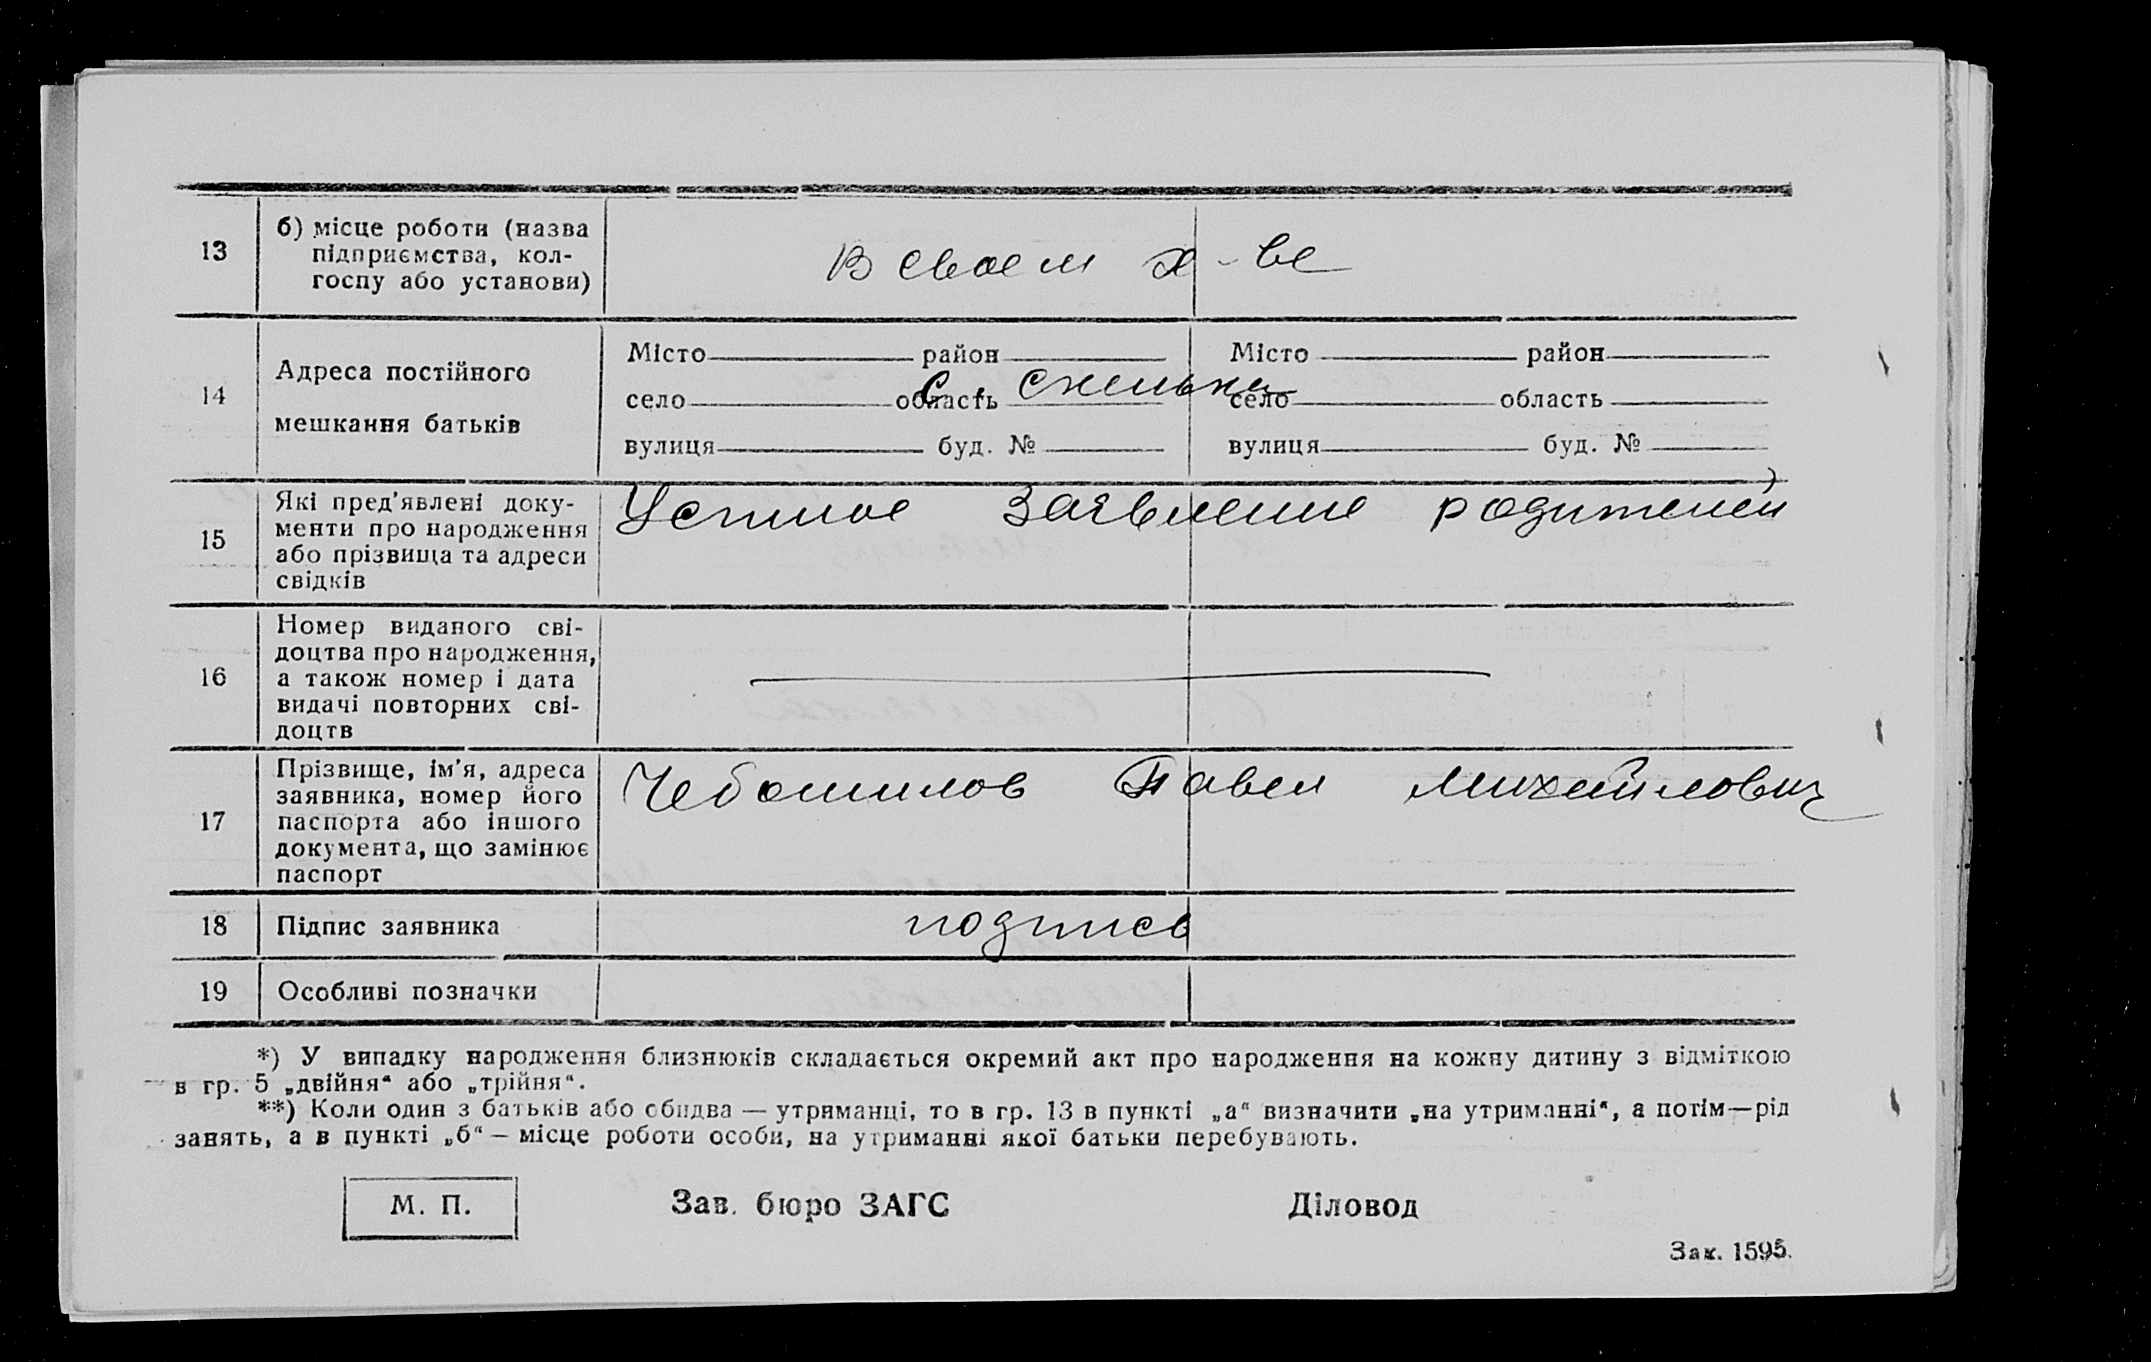 13 б) місце роботи (назва
підприємства, кол-
госпу або установи)
В своем х-ве
14 Адреса постійного
мешкання батьків
Місто район Місто район
с. Скелька
село область село область
вулиця буд. № вулиця буд. №
15 Які пред'явлені доку-
менти про народження
або прізвища та адреси
свідків
Устное заявление родителей
16 Номер виданого сві-
доцтва про народження,
а також номер і дата
видачі повторних сві-
доцтв
17 Прізвище, ім'я, адреса
заявника, номер його
паспорта або іншого
документа, що замінює
паспорт
Павел Михайлович
18 Підпис заявника подпись
19 Особливі позначки
*) У випадку народження близнюків складається окремий акт про народження на кожну дитину з відміткою
в гр. 5 „двійня“ або „трійня“.
**) Коли один з батьків або обидва — утриманці, то в гр. 13 в пункті „а“ визначити „на утриманні“, а потім—рід
занять, а в пункті „б“ — місце роботи особи, на утриманні якої батьки перебувають.
М. П. Зав. бюро ЗАГС Діловод
Зак. 1595.